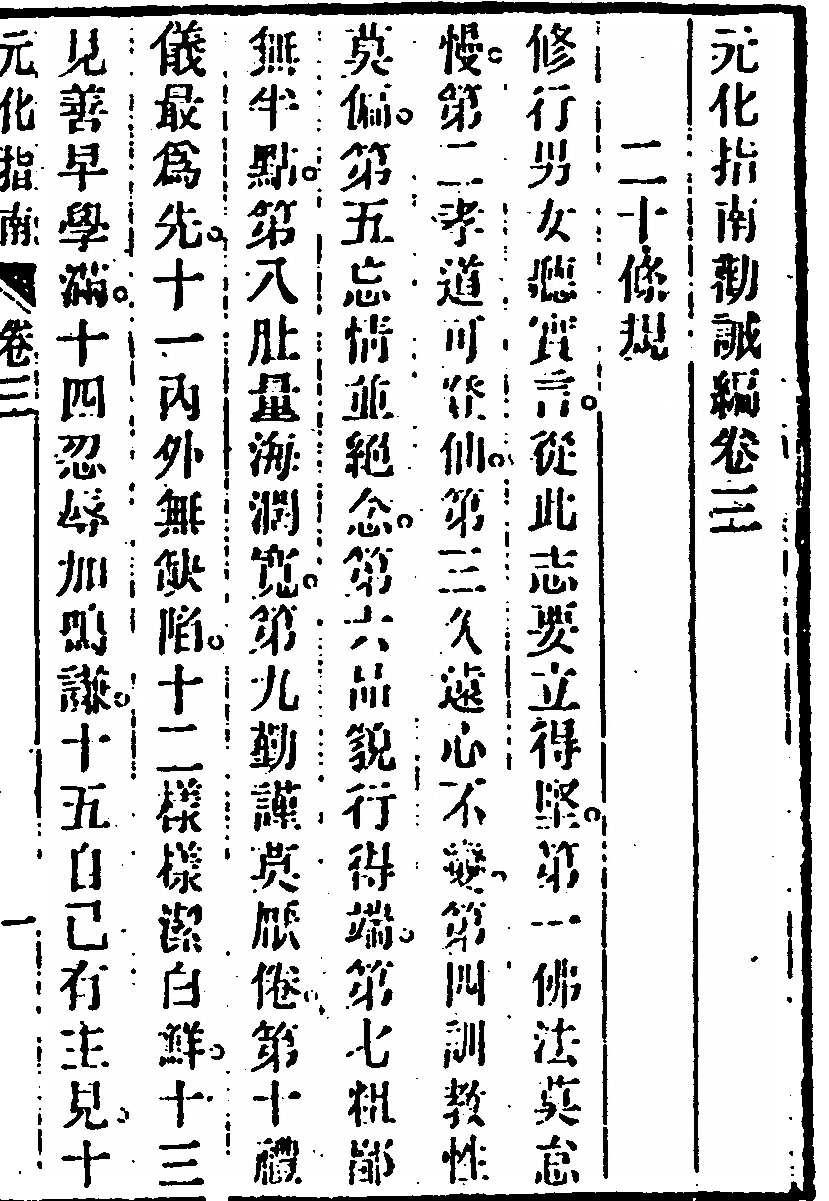 元化指南勸誡編卷三
二十條規
修行男女聽實言從此志要立得堅第一佛法莫怠
慢第二孝道可登仙第三久遠心不變第四訓教性
莫偏第五忘情並絕念第六品貌行得端第七粗鄙
無半點第八肚量海濶寬第九勤謹莫厭倦第十禮
儀最爲先十一內外無缺陷十二樣樣潔白鮮十三
見善早學滿十四忍辱加鳴謙十五自己有主見十
元化指南 卷三 一